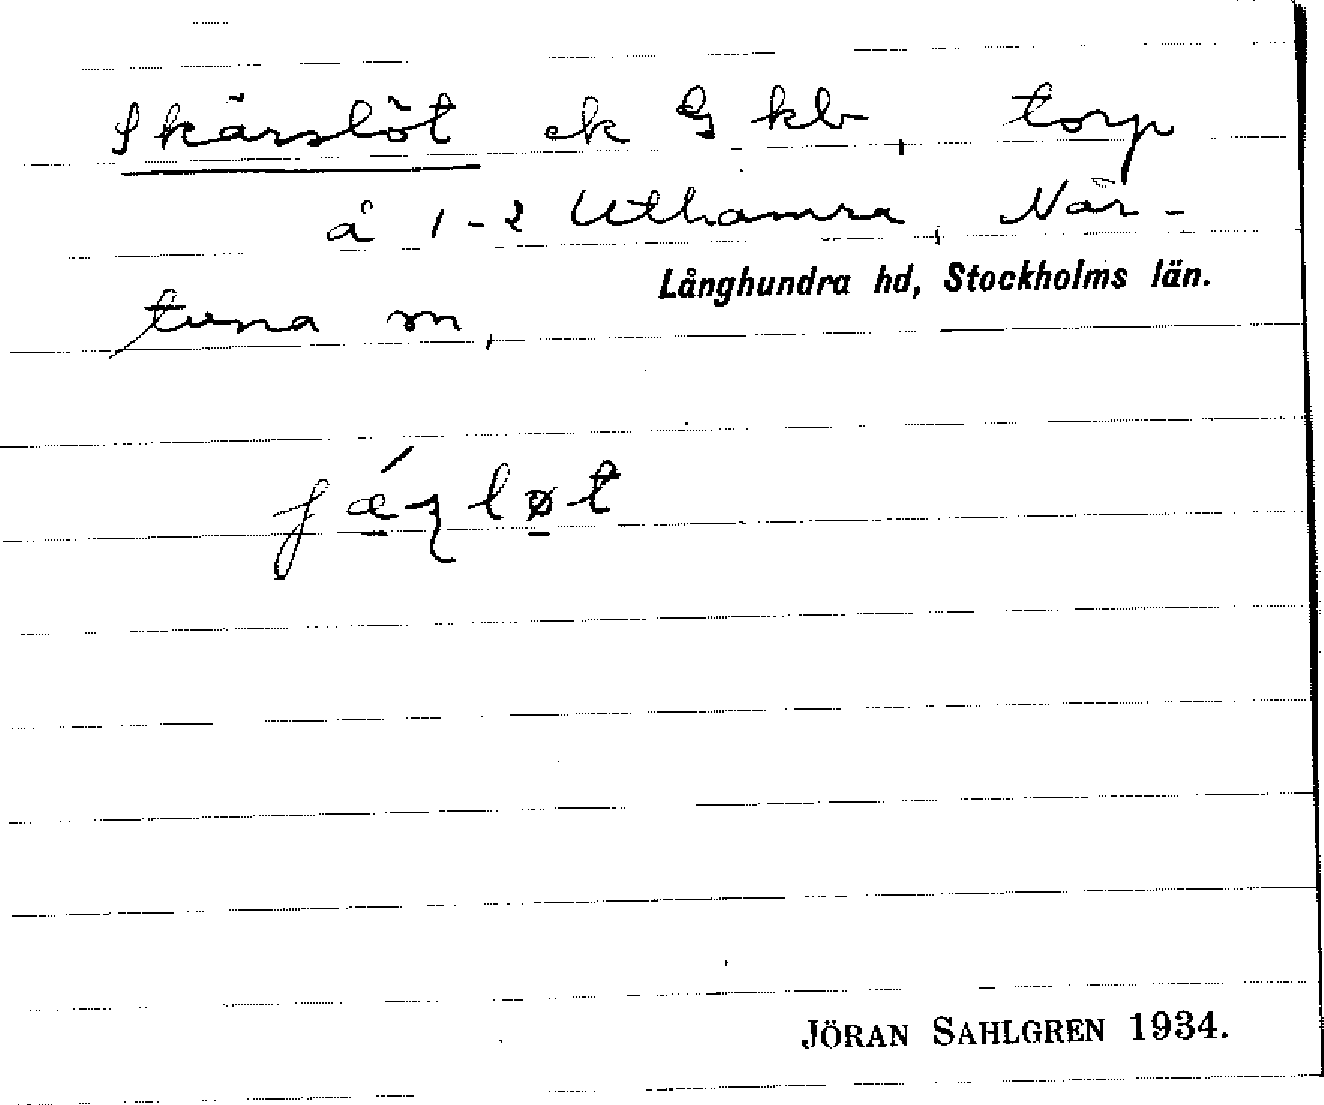 Skärslöt ek G kb, torp
å 1-2 Uthamra, När-
Långhundra hd, Stockholms län.
tuna sn,
JÖRAN SAHLGREN 1934.